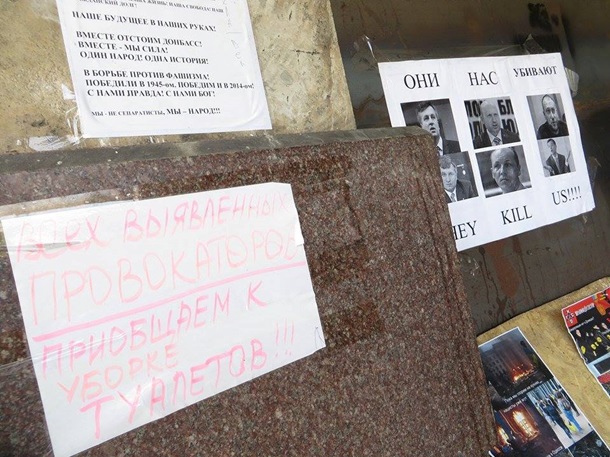 ЖИЗНЬ! НАША СВОБОДА! НАШ
НАШЕ БУДУЩЕЕ В НАШИХ РУКАХ!
ВМЕСТЕ ОТСТОИМ ДОНБАСС!
ВМЕСТЕ - МЫ СИЛА!
ОДИН НАРОД! ОДНА ИСТОРИЯ!
В БОРЬБЕ ПРОТИВ ФАШИЗМА!
ПОБЕДИЛИ В 1945-ом, ПОБЕДИМ И В 2014-ом!
С НАМИ ПРАВДА! С НАМИ БОГ!
МЫ - НЕ СЕПАРАТИСТЫ, МЫ – НАРОД!!!
ОНИ НАС УБИВАЮТ
HEY KILL US!!!!
ВСЕХ ВЫЯВЛЕННЫХ
ПРОВОКАТОРОВ
ПРИОБЩАЕМ К
УБОРКЕ
ТУАЛЕТОВ!!!